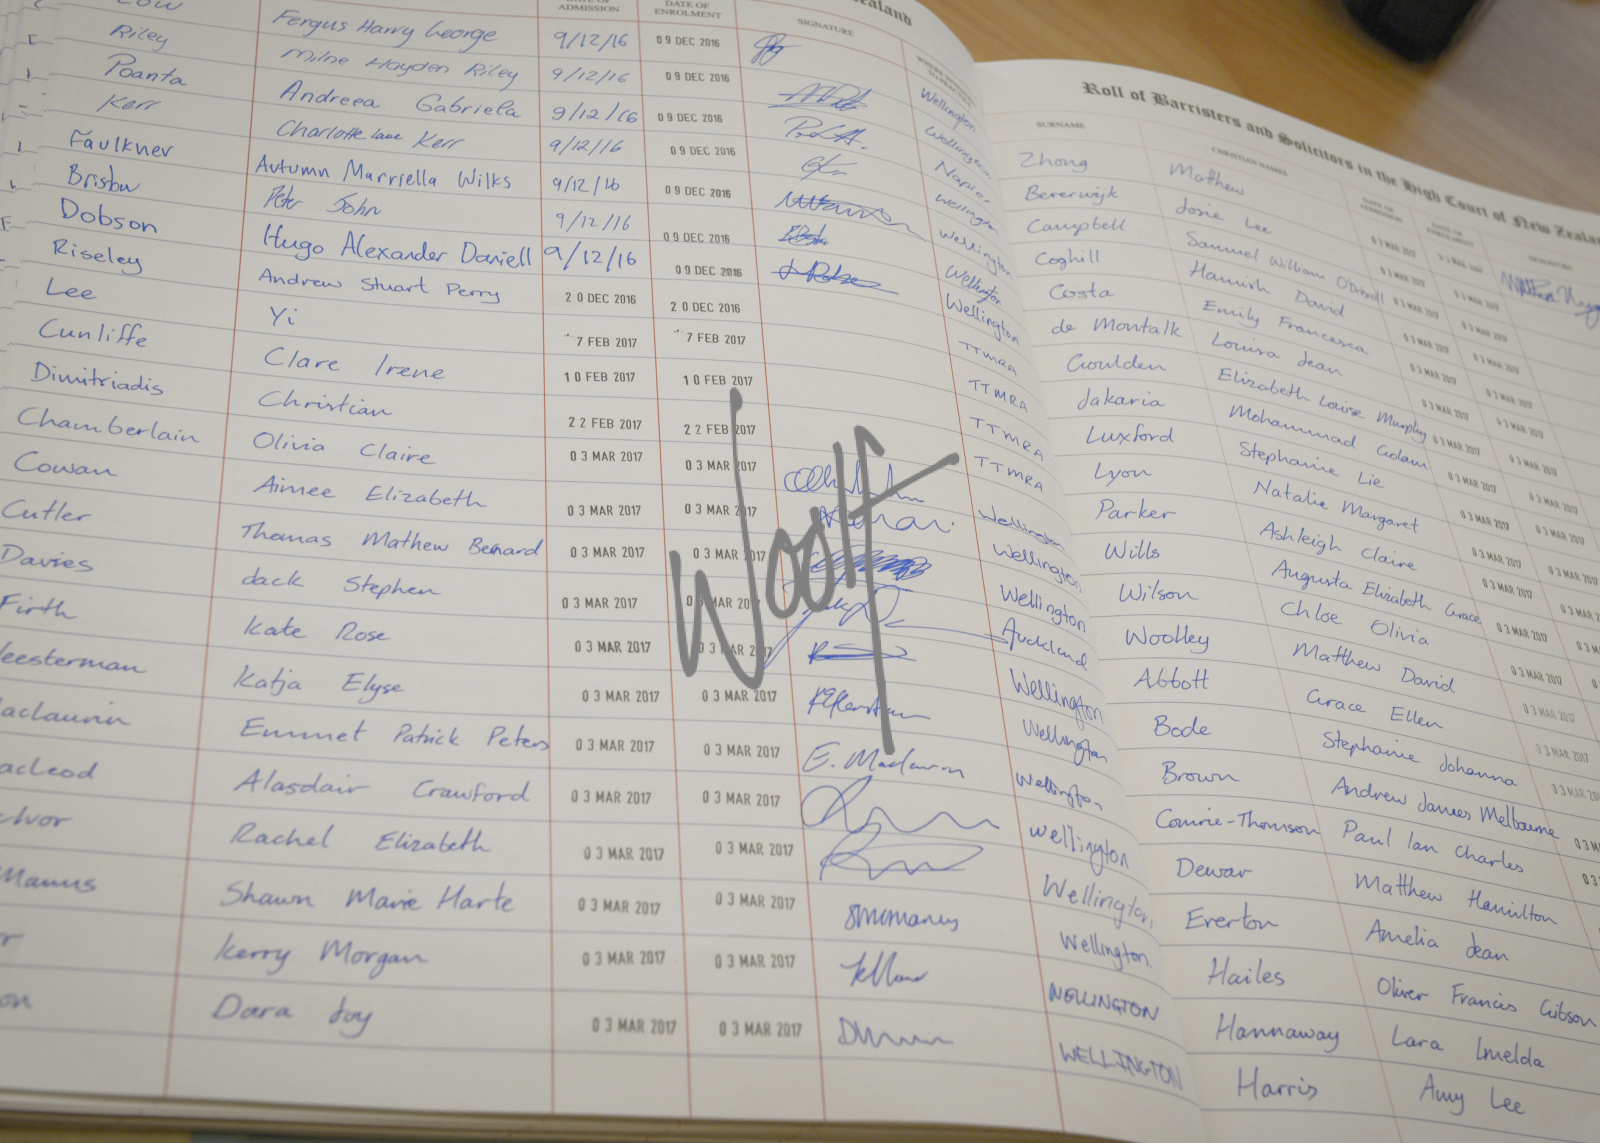 Low Fergus Harry George 9/12/16 09 DEC 2016 Wellington
Riley Milne Hayden Riley 9/12/16 09 DEC 2016 Wellington
Poanta Andreea Gabriela 9/12/16 09 DEC 2016 Napier
Kerr Charlotte Jane Kerr 9/12/16 09 DEC 2016 Wellington
Faulkner Autumn Marriella Wilks 9/12/16 09 DEC 2016 Wellington
Brisbw Peter John 9/12/16 09 DEC 2016 Wellington
Dobson Hugo Alexander Daniell 9/12/16 09 DEC 2016 Wellington
Riseley Andrew Stuart Perry 20 DEC 2016 20 DEC 2016 TTMRA
Lee Yi 7 FEB 2017 7 FEB 2017 TTMRA
Cunliffe Clare Irene 10 FEB 2017 10 FEB 2017 TTMRA
Dimitriadis Christian 22 FEB 2017 22 FEB 2017 TTMRA
Chamberlain Olivia Claire 03 MAR 2017 03 MAR 2017 Wellington
Cowan Aimee Elizabeth 03 MAR 2017 03 MAR 2017 Wellington
Cutler Thomas Mathew Bernard 03 MAR 2017 03 MAR 2017 Wellington
Davies Jack Stephen 03 MAR 2017 03 MAR 2017 Auckland
Firth Kate Rose 03 MAR 2017 03 MAR 2017 Wellington
eesterman Katja Elyse 03 MAR 2017 03 MAR 2017 Wellington
aclaurin Emmet Patrick Peters 03 MAR 2017 03 MAR 2017 E. Maclaurin Wellington
acLeod Alasdair Crawford 03 MAR 2017 03 MAR 2017 Wellington
Ivor Rachel Elizabeth 03 MAR 2017 03 MAR 2017 Wellington
Manus Shawn Marie Harte 03 MAR 2017 03 MAR 2017 smcmanus Wellington
r Kerry Morgan 03 MAR 2017 03 MAR 2017 WELLINGTON
on Dara Joy 03 MAR 2017 03 MAR 2017 WELLINGTON
Woolf
DATE OF ADMISSION DATE OF ENROLMENT SIGNATURE
Zealand
Roll of Barristers and Solicitors in the High Court of New Zeala
SURNAME CHRISTIAN NAMES DATE OF ADMISSION DATE OF ENROLMENT SIGNATURE
Zhong Matthew 03 MAR 2017 03 MAR 2017
Bererwijk Josie Lee 03 MAR 2017 03 MAR 2017
Campbell Samuel William O'Driscoll 03 MAR 2017 03 MAR 2017
Coghill Hamish David 03 MAR 2017 03 MAR 2017
Costa Emily Francesca 03 MAR 2017 03 MAR 2017
de Montalk Louisa Jean 03 MAR 2017 03 MAR 2017
Goulden Elizabeth Louise Murphy 03 MAR 2017 03 MAR 2017
Jakaria Mohammad Golam 03 MAR 2017 03 MAR 2017
Luxford Stephanie Lie 03 MAR 2017 03 MAR 2017
Lyon Natalie Margaret 03 MAR 2017 03 MAR 2017
Parker Ashleigh Claire 03 MAR 2017
Wills Augusta Elizabeth Grace 03 MAR 2017
Wilson Chloe Olivia 03 MAR 2017
Woolley Matthew David 03 MAR 2017
Abbott Grace Ellen 03 MAR 2017
Bode Stephanie Johanna 03 MAR 20
Brown Andrew James Melbourne 03 M
Comrie-Thomson Paul Ian Charles 03
Dewar Matthew Hamilton
Everton Amelia Jean
Hailes Oliver Francis Gibson
Hannaway Lara Imelda
Harris Amy Lee